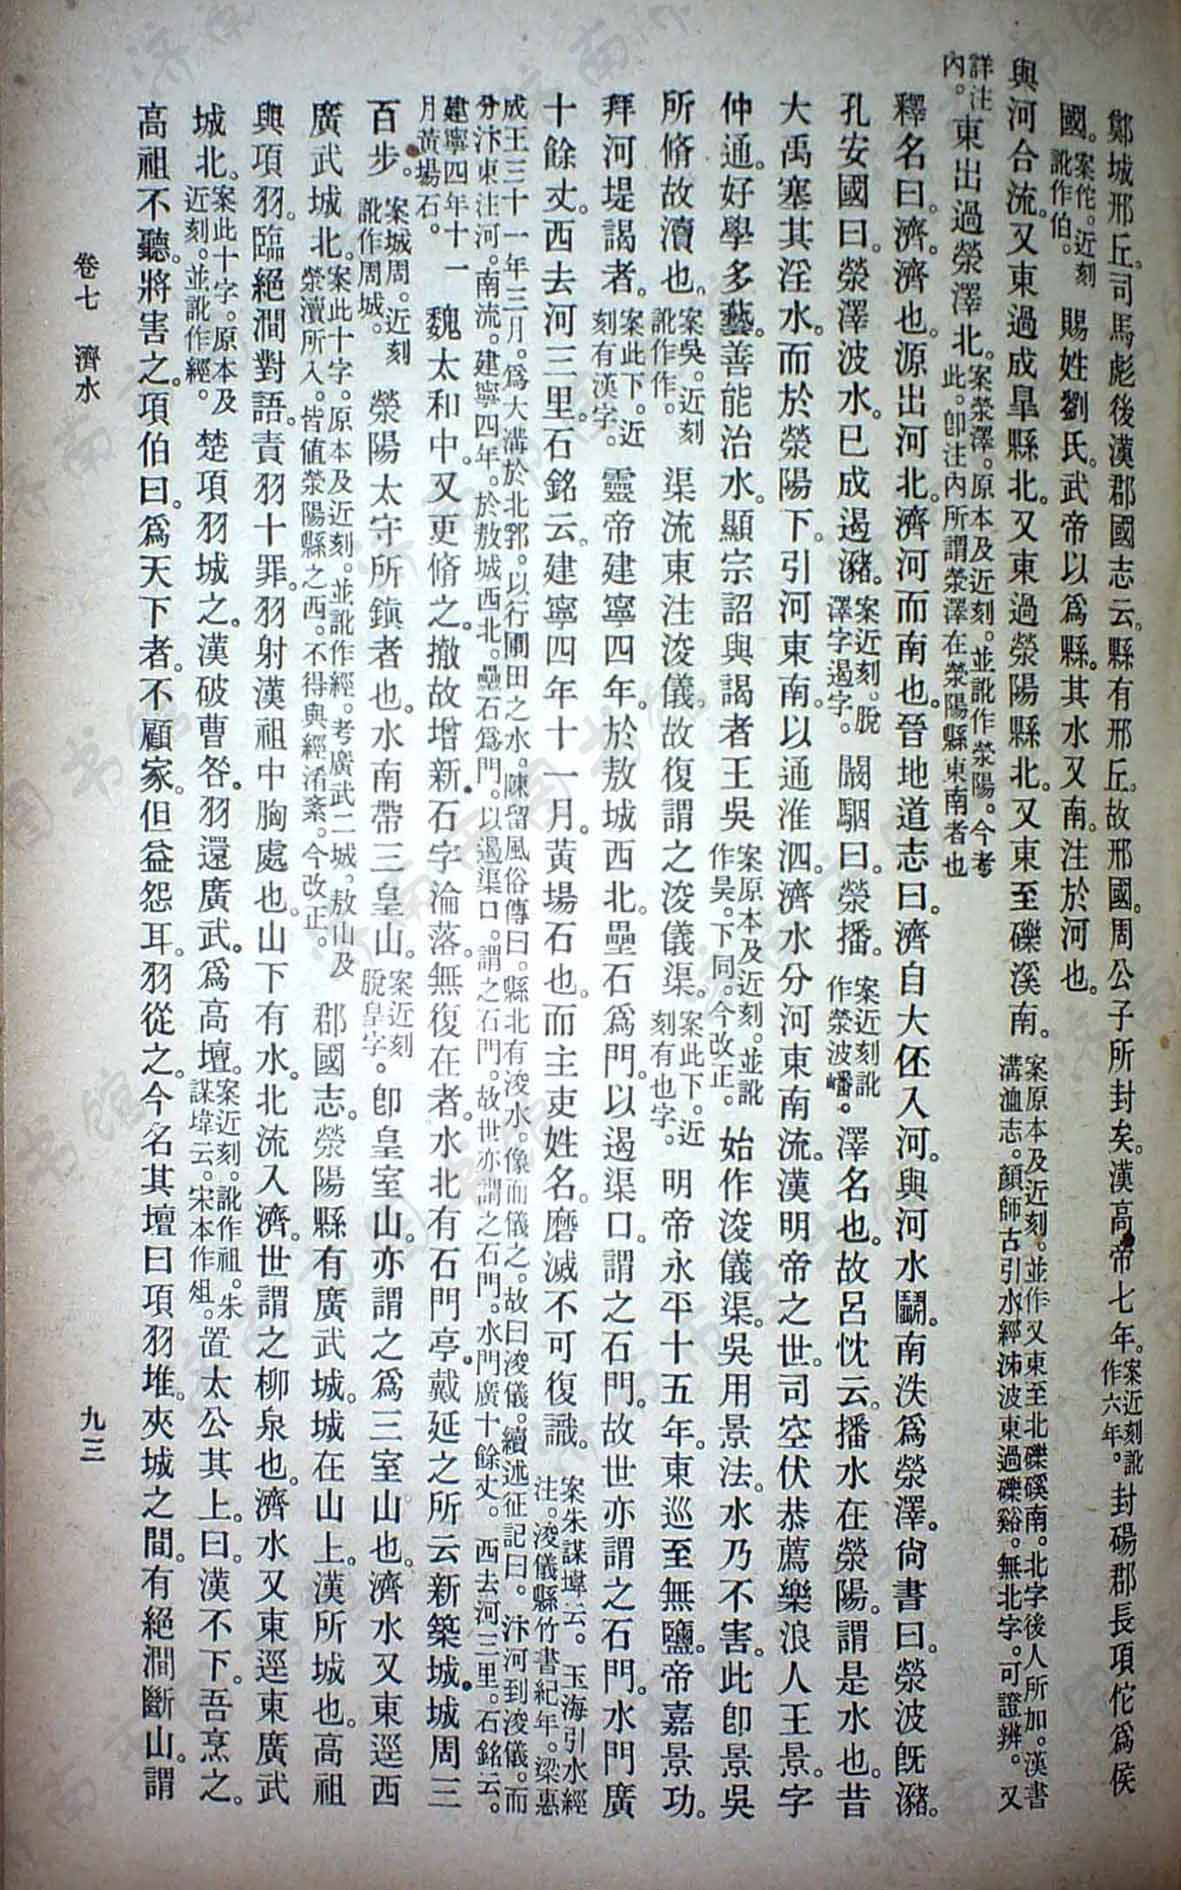 鄭城邢丘。司馬彪後漢郡國志云。縣有邢丘。故邢國。周公子所封矣。漢高帝七年。案近刻訛作六年。封碭郡長項佗爲侯
國。案佗。近刻訛作伯。賜姓劉氏。武帝以爲縣。其水又南。注於河也。
與河合流。又東過成臯縣北。又東過滎陽縣北。又東至礫溪南。案原本及近刻。並作又東至北礫磎南。北字後人所加。漢書溝洫志。顏師古引水經沛波東過礫谿。無北字。可證辨。又
詳注內。東出過滎澤北。案滎澤。原本及近刻。並訛作滎陽。今考此。卽注內所謂滎澤在滎陽縣東南者也
釋名曰。濟。濟也。源出河北。濟河而南也。晉地道志曰。濟自大伾入河。與河水鬭。南泆爲滎澤。尙書曰。滎波旣瀦。
孔安國曰。滎澤波水。已成遏瀦。案近刻。脫澤字遏字。闞駰曰。滎播。案近刻訛作滎波嶓。澤名也。故呂忱云。播水在滎陽。謂是水也。昔
大禹塞其淫水。而於滎陽下。引河東南。以通淮泗。濟水分河東南流。漢明帝之世。司空伏恭薦樂浪人王景。字
仲通。好學多藝。善能治水。顯宗詔與謁者王吳案原本及近刻。並訛作昊。下同。今改正。始作浚儀渠。吳用景法。水乃不害。此卽景吳
所脩故瀆也。案吳。近刻訛作作。渠流東注浚儀。故復謂之浚儀渠。案此下。近刻有也字。明帝永平十五年。東巡至無鹽。帝嘉景功。
拜河堤謁者。案此下。近刻有漢字。靈帝建寧四年。於敖城西北。壘石爲門。以遏渠口。謂之石門。故世亦謂之石門。水門廣
十餘丈。西去河三里。石銘云。建寧四年十一月。黃場石也。而主吏姓名。磨滅不可復識。案朱謀㙔云。玉海引水經注。浚儀縣竹書紀年。梁惠
成王三十一年三月。爲大溝於北郛。以行圃田之水。陳留風俗傳曰。縣北有浚水。像而儀之。故曰浚儀。續述征記曰。汴河到浚儀。而分汴東注河。南流。建寧四年。於敖城西北。壘石爲門。以遏渠口。謂之石門。故世亦謂之石門。水門廣十餘丈。西去河三里。石銘云。
建寧四年十一月黃場石。魏太和中。又更脩之。撤故增新。石字淪落。無復在者。水北有石門亭。戴延之所云新築城。城周三
百步。案城周。近刻訛作周城。滎陽太守所鎮者也。水南帶三皇山。案近刻脫皇字。卽皇室山。亦謂之爲三室山也。濟水又東逕西
廣武城北。案此十字。原本及近刻。並訛作經。考廣武二城。敖山及滎瀆所入。皆値滎陽縣之西。不得與經淆紊。今改正。郡國志。滎陽縣有廣武城。城在山上。漢所城也。高祖
與項羽。臨絕澗對語。責羽十罪。羽射漢祖中胸處也。山下有水。北流入濟。世謂之柳泉也。濟水又東逕東廣武
城北。案此十字。原本及近刻。並訛作經。楚項羽城之。漢破曹咎。羽還廣武。爲高壇。案近刻。訛作祖。朱謀㙔云。宋本作俎。置太公其上。曰。漢不下。吾烹之。
高祖不聽。將害之。項伯曰。爲天下者。不顧家。但益怨耳。羽從之。今名其壇曰項羽堆。夾城之間。有絕澗斷山。謂
卷七 濟水
九三